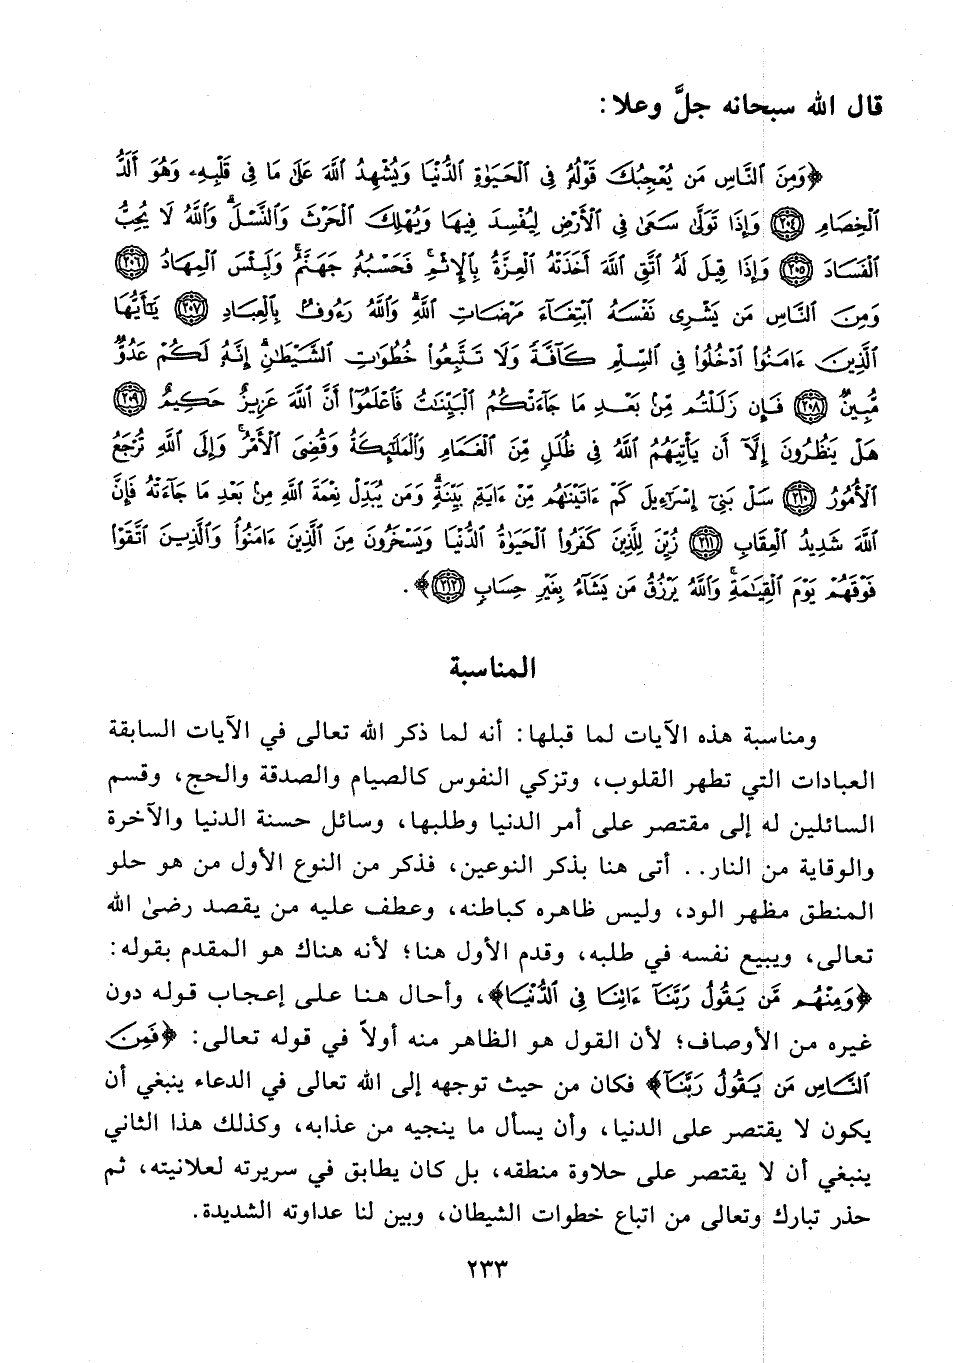 قال الله سبحانه جلَّ وعلا:
﴿وَمِنَ ٱلنَّاسِ مَن يُعْجِبُكَ قَوْلُهُۥ فِى ٱلْحَيَوٰةِ ٱلدُّنْيَا وَيُشْهِدُ ٱللَّهَ عَلَىٰ مَا فِى قَلْبِهِۦ وَهُوَ أَلَدُّ
ٱلْخِصَامِ ٢٠٤ وَإِذَا تَوَلَّىٰ سَعَىٰ فِى ٱلْأَرْضِ لِيُفْسِدَ فِيهَا وَيُهْلِكَ ٱلْحَرْثَ وَٱلنَّسْلَ ۗ وَٱللَّهُ لَا يُحِبُّ
ٱلْفَسَادَ ٢٠٥ وَإِذَا قِيلَ لَهُ ٱتَّقِ ٱللَّهَ أَخَذَتْهُ ٱلْعِزَّةُ بِٱلْإِثْمِ ۚ فَحَسْبُهُۥ جَهَنَّمُ ۚ وَلَبِئْسَ ٱلْمِهَادُ ٢٠٦
وَمِنَ ٱلنَّاسِ مَن يَشْرِى نَفْسَهُ ٱبْتِغَآءَ مَرْضَاتِ ٱللَّهِ ۗ وَٱللَّهُ رَءُوفٌۢ بِٱلْعِبَادِ ٢٠٧ يَـٰٓأَيُّهَا
ٱلَّذِينَ ءَامَنُوا۟ ٱدْخُلُوا۟ فِى ٱلسِّلْمِ كَآفَّةً وَلَا تَتَّبِعُوا۟ خُطُوَٰتِ ٱلشَّيْطَـٰنِ ۚ إِنَّهُۥ لَكُمْ عَدُوٌّ
مُّبِينٌ ٢٠٨ فَإِن زَلَلْتُم مِّنۢ بَعْدِ مَا جَآءَتْكُمُ ٱلْبَيِّنَـٰتُ فَٱعْلَمُوٓا۟ أَنَّ ٱللَّهَ عَزِيزٌ حَكِيمٌ ٢٠٩
هَلْ يَنظُرُونَ إِلَّآ أَن يَأْتِيَهُمُ ٱللَّهُ فِى ظُلَلٍ مِّنَ ٱلْغَمَامِ وَٱلْمَلَـٰٓئِكَةُ وَقُضِىَ ٱلْأَمْرُ ۚ وَإِلَى ٱللَّهِ تُرْجَعُ
ٱلْأُمُورُ ٢١٠ سَلْ بَنِىٓ إِسْرَٰٓءِيلَ كَمْ ءَاتَيْنَـٰهُم مِّنْ ءَايَةٍۭ بَيِّنَةٍ ۗ وَمَن يُبَدِّلْ نِعْمَةَ ٱللَّهِ مِنۢ بَعْدِ مَا جَآءَتْهُ فَإِنَّ
ٱللَّهَ شَدِيدُ ٱلْعِقَابِ ٢١١ زُيِّنَ لِلَّذِينَ كَفَرُوا۟ ٱلْحَيَوٰةُ ٱلدُّنْيَا وَيَسْخَرُونَ مِنَ ٱلَّذِينَ ءَامَنُوا۟ ۘ وَٱلَّذِينَ ٱتَّقَوْا۟
فَوْقَهُمْ يَوْمَ ٱلْقِيَـٰمَةِ ۗ وَٱللَّهُ يَرْزُقُ مَن يَشَآءُ بِغَيْرِ حِسَابٍ ٢١٢﴾.
المناسبة
ومناسبة هذه الآيات لما قبلها: أنه لما ذكر الله تعالى في الآيات السابقة
العبادات التي تطهر القلوب، وتزكي النفوس كالصيام والصدقة والحج، وقسم
السائلين له إلى مقتصر على أمر الدنيا وطلبها، وسائل حسنة الدنيا والآخرة
والوقاية من النار.. أتى هنا بذكر النوعين، فذكر من النوع الأول من هو حلو
المنطق مظهر الود، وليس ظاهره كباطنه، وعطف عليه من يقصد رضىٰ الله
تعالى، ويبيع نفسه في طلبه، وقدم الأول هنا؛ لأنه هناك هو المقدم بقوله:
﴿وَمِنْهُم مَّن يَقُولُ رَبَّنَآ ءَاتِنَا فِى ٱلدُّنْيَا﴾، وأحال هنا على إعجاب قوله دون
غيره من الأوصاف؛ لأن القول هو الظاهر منه أولاً في قوله تعالى: ﴿فَمِنَ
ٱلنَّاسِ مَن يَقُولُ رَبَّنَآ﴾ فكان من حيث توجهه إلى الله تعالى في الدعاء ينبغي أن
يكون لا يقتصر على الدنيا، وأن يسأل ما ينجيه من عذابه، وكذلك هذا الثاني
ينبغي أن لا يقتصر على حلاوة منطقه، بل كان يطابق في سريرته لعلانيته، ثم
حذر تبارك وتعالى من اتباع خطوات الشيطان، وبين لنا عداوته الشديدة.
٢٣٣